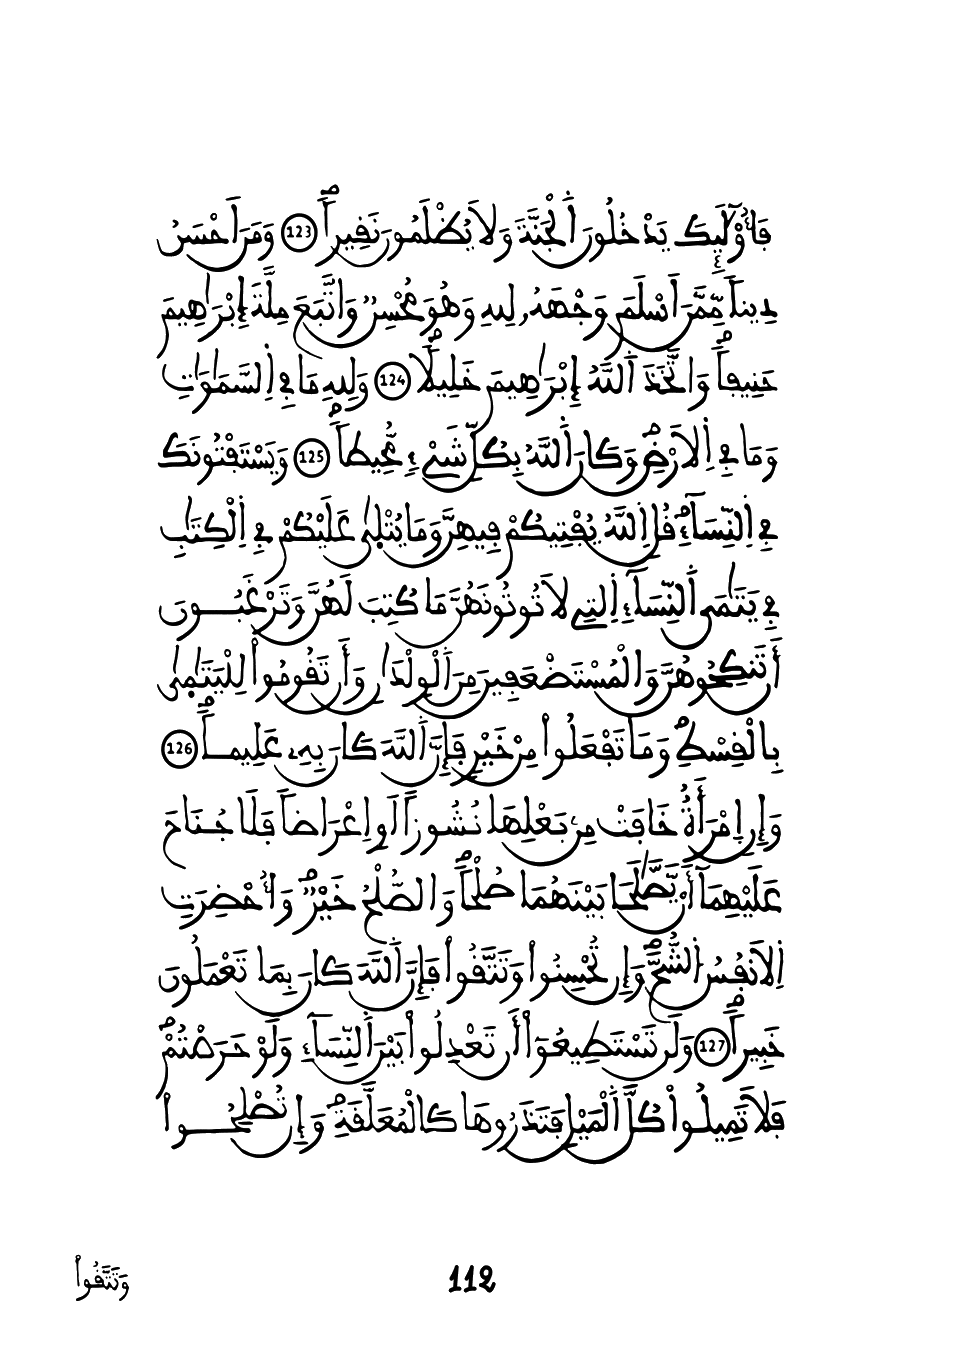 فَأُوْلَٰٓئِكَ يَدْخُلُونَ اَ۬لْجَنَّةَ وَلَا يُظْلَمُونَ نَقِيراٗۖ 123 وَمَنَ اَحْسَنُ
دِيناٗ مِّمَّنَ اَسْلَمَ وَجْهَهُۥ لِلهِ وَهُوَ مُحْسِنٞ وَاتَّبَعَ مِلَّةَ إِبْرَٰهِيمَ
حَنِيفاٗۖ وَاتَّخَذَ اَ۬للَّهُ إِبْرَٰهِيمَ خَلِيلاٗۖ 124 وَلِلهِ مَا فِے اِ۬لسَّمَٰوَٰتِ
وَمَا فِے اِ۬لَارْضِۖ وَكَانَ اَ۬للَّهُ بِكُلِّ شَےْءٖ مُّحِيطاٗۖ 125 وَيَسْتَفْتُونَكَ
فِے اِ۬لنِّسَآءِۖ قُلِ اِ۬للَّهُ يُفْتِيكُمْ فِيهِنَّ وَمَا يُتْلَىٰ عَلَيْكُمْ فِے اِ۬لْكِتَٰبِ
فِے يَتَٰمَى اَ۬لنِّسَآءِ اِ۬لتِے لَا تُوتُونَهُنَّ مَا كُتِبَ لَهُنَّ وَتَرْغَبُونَ
أَن تَنكِحُوهُنَّ وَالْمُسْتَضْعَفِينَ مِنَ اَ۬لْوِلْدَٰنِ وَأَن تَقُومُواْ لِلْيَتَٰمَىٰ
بِالْقِسْطِۖ وَمَا تَفْعَلُواْ مِنْ خَيْرٖ فَإِنَّ اَ۬للَّهَ كَانَ بِهِۦ عَلِيماٗۖ 126
وَإِنِ اِ۪مْرَأَةٌ خَافَتْ مِنۢ بَعْلِهَا نُشُوزاً اَوِ اِعْرَاضاٗ فَلَا جُنَاحَ
عَلَيْهِمَآ أَنْ يَّصَّٰلَحَا بَيْنَهُمَا صُلْحاٗۖ وَالصُّلْحُ خَيْرٞۖ وَأُحْضِرَتِ
اِ۬لَانفُسُ اُ۬لشُّحَّۖ وَإِن تُحْسِنُواْ وَتَتَّقُواْ فَإِنَّ اَ۬للَّهَ كَانَ بِمَا تَعْمَلُونَ
خَبِيراٗۖ 127 وَلَن تَسْتَطِيعُوٓاْ أَن تَعْدِلُواْ بَيْنَ اَ۬لنِّسَآءِ وَلَوْ حَرَصْتُمْۖ
فَلَا تَمِيلُواْ كُلَّ اَ۬لْمَيْلِ فَتَذَرُوهَا كَالْمُعَلَّقَةِۖ وَإِن تُصْلِحُواْ
وَتَتَّقُواْ
112